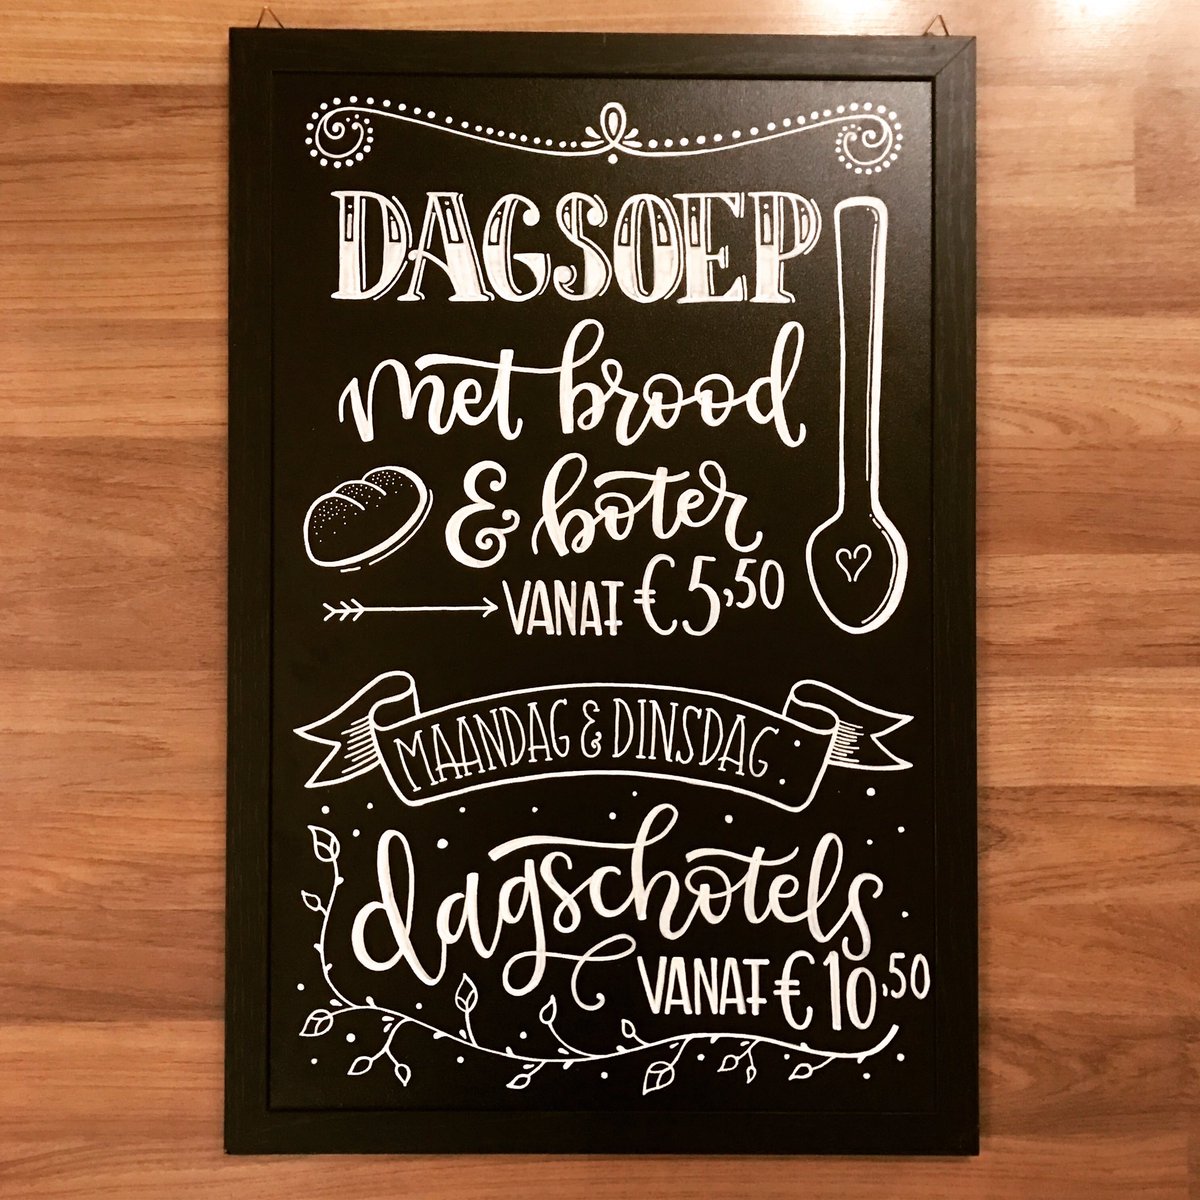 DAGSOEP
met brood
& boter
VANAF €5,50
MAANDAG & DINSDAG:
dagschotels
VANAF €10,50